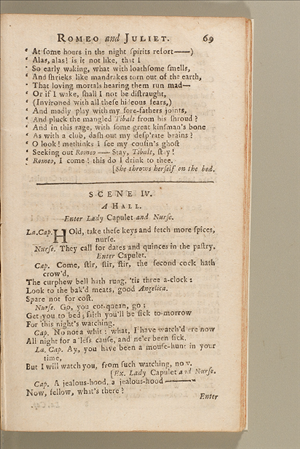 ROMEO and JULIET. 69
‘ At some hours in the night spirits resort——)
‘ Alas, alas! is it not like, that I
‘ So early waking, what with loathsome smells,
‘ And shrieks like mandrakes torn out of the earth,
‘ That loving mortals hearing them run mad—
‘ Or if I wake, shall I not be distraught,
‘ (Invironed with all these hideous fears,)
‘ And madly play with my fore-fathers joints,
‘ And pluck the mangled Tibalt from his shroud?
‘ And in this rage, with some great kinsman's bone
‘ As with a club, dash out my desp'rate brains?
‘ O look! methinks I see my cousin's ghost
‘ Seeking out Romeo — Stay, Tibalt, stay!
‘ Romeo, I come! this do I drink to thee.
[She throws herself on the bed.
SCENE IV.
A HALL.
Enter Lady Capulet and Nurse.
La. Cap. HOld, take these keys and fetch more spices,
nurse.
Nurse. They call for dates and quinces in the pastry.
Enter Capulet.
Cap. Come, stir, stir, stir, the second cock hath
crow'd,
The curphew bell hath rung, 'tis three a-clock:
Look to the bak'd meats, good Angelica.
Spare not for cost.
Nurse. Go, you cot-quean, go;
Get you to bed; faith you'll be sick to-morrow
For this night's watching.
Cap. No not a whit: what, I have watch'd ere now
All night for a less cause, and ne'er been sick.
La. Cap. Ay, you have been a mouse-hunt in your
time,
But I will watch you, from such watching, now.
[Ex. Lady Capulet and Nurse.
Cap. A jealous-hood, a jealous-hood———
Now, fellow, what's there?
Enter